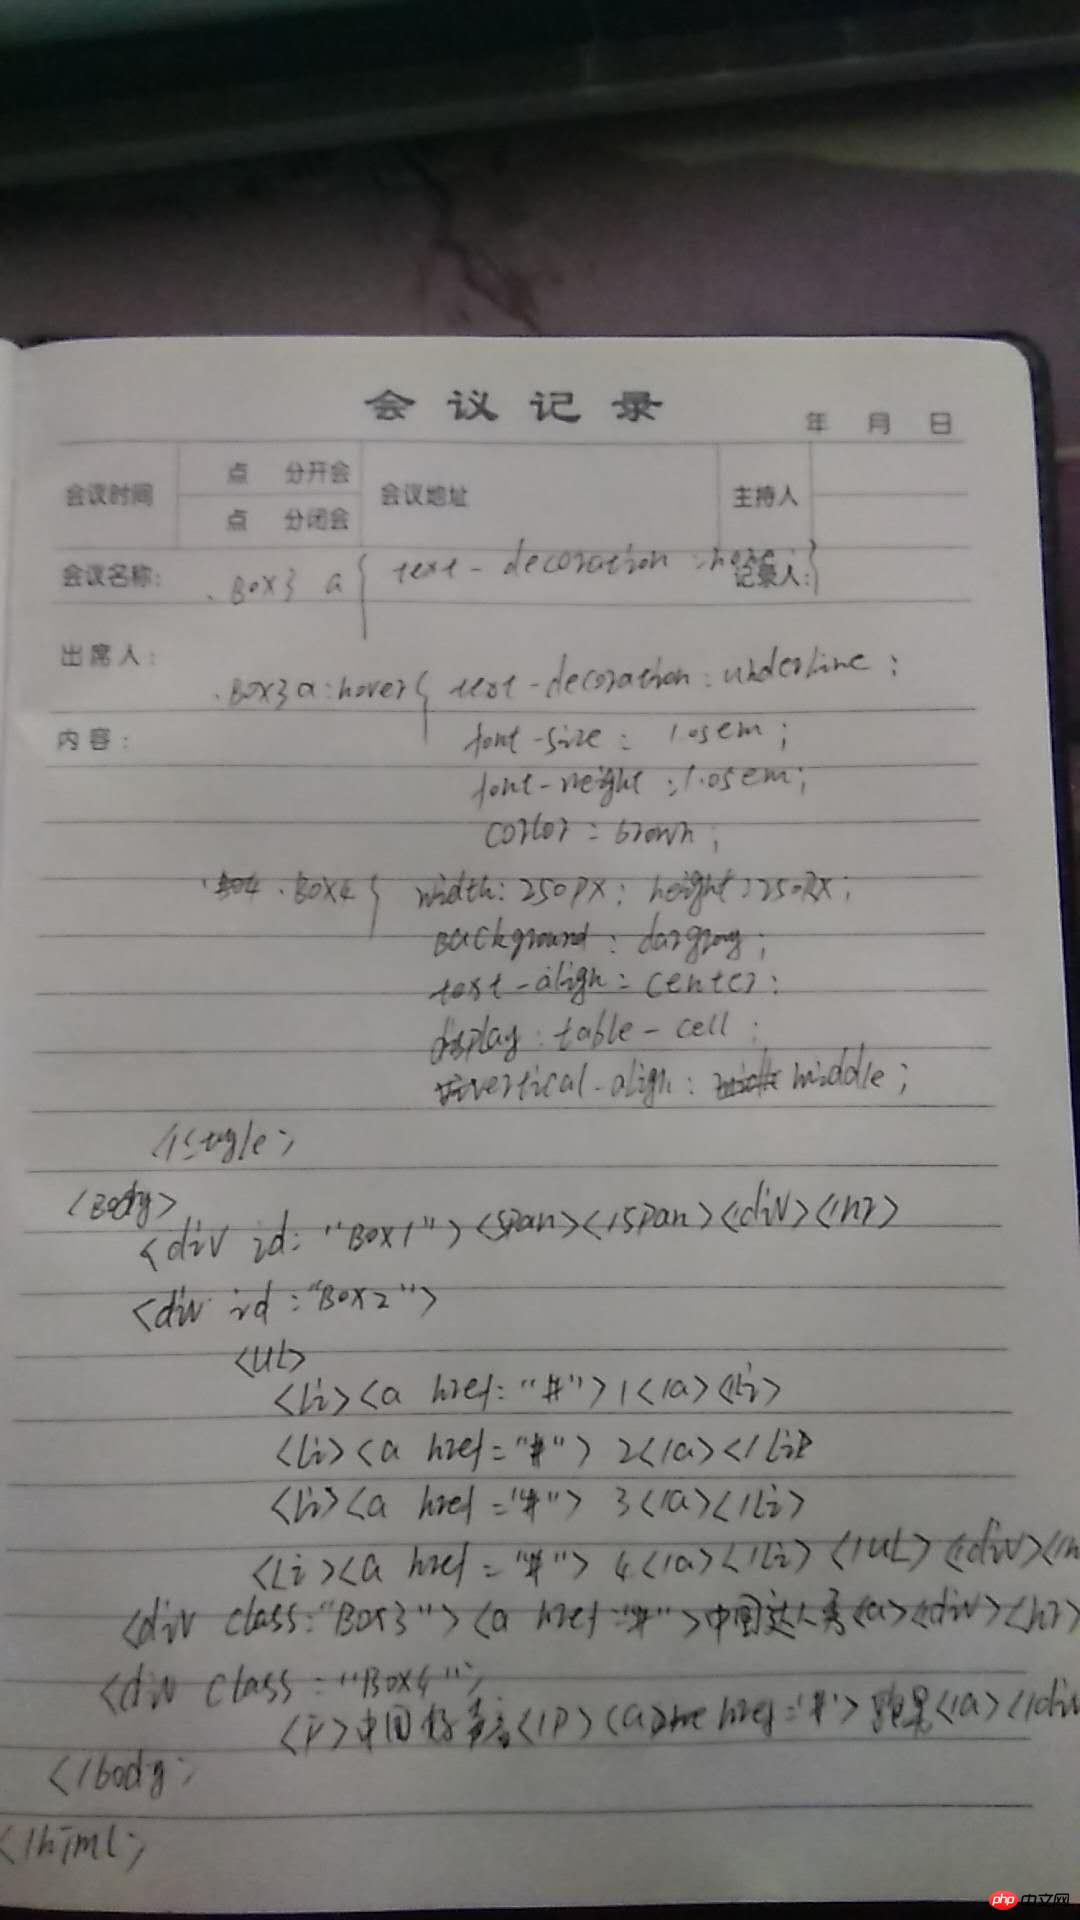 会议记录
年 月 日
会议时间 点 分开会 会议地址 主持人
点 分闭会
会议名称: 记录人:
.Box3 a{ text-decoration:none;}
出席人:
.Box3 a:hover{ text-decoration:underline;
内容: font-size: 1.05em;
font-weight:1.05em;
brown;
.Box4{ width:250px; height:250px;
Background:
text-align:center;
display:table-cell;
vertical-align: middle;
</style>
<Body>
<div id:"Box1"><span></span></div></hr>
<div id:"Box2">
<UL>
<Li><a href:"#">1</a></Li>
<Li><a href="#">2</a></Li>
<Li><a href="#">3</a></Li>
<Li><a href="#">4</a></Li></UL></div>
<div class:"Box3"><a href="#">中国达人秀<a></div><hr>
<div class="Box4">
<P>中国好声音</P> href="#"> </a></div
</body>
</html>
php 中文网